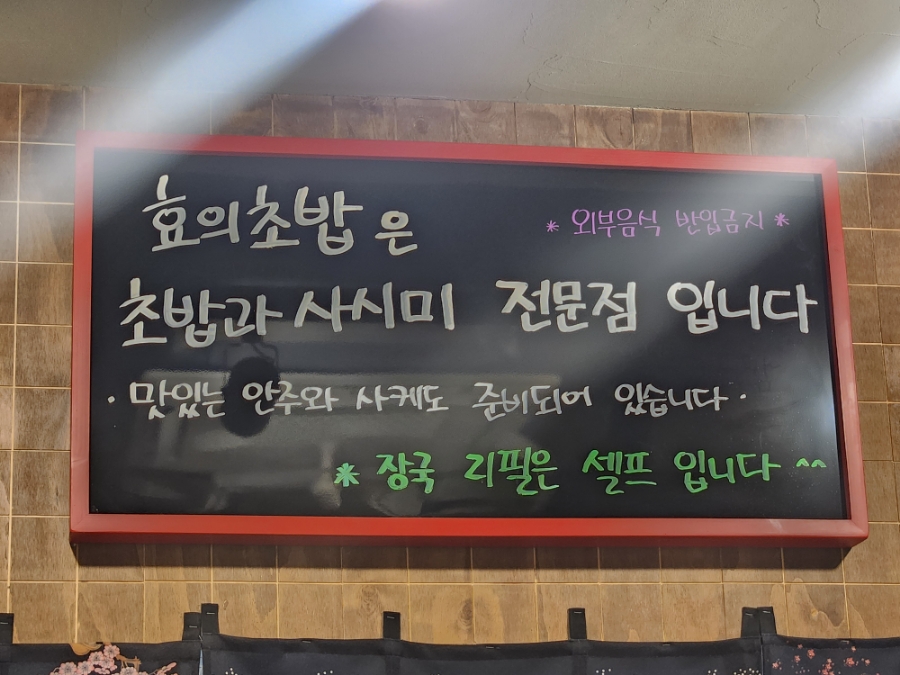 효의초밥은
* 외부음식 반입금지 *
초밥과 사시미 전문점 입니다
· 맛있는 안주와 사케도 준비되어 있습니다 ·
* 장국 리필은 셀프 입니다 ^^